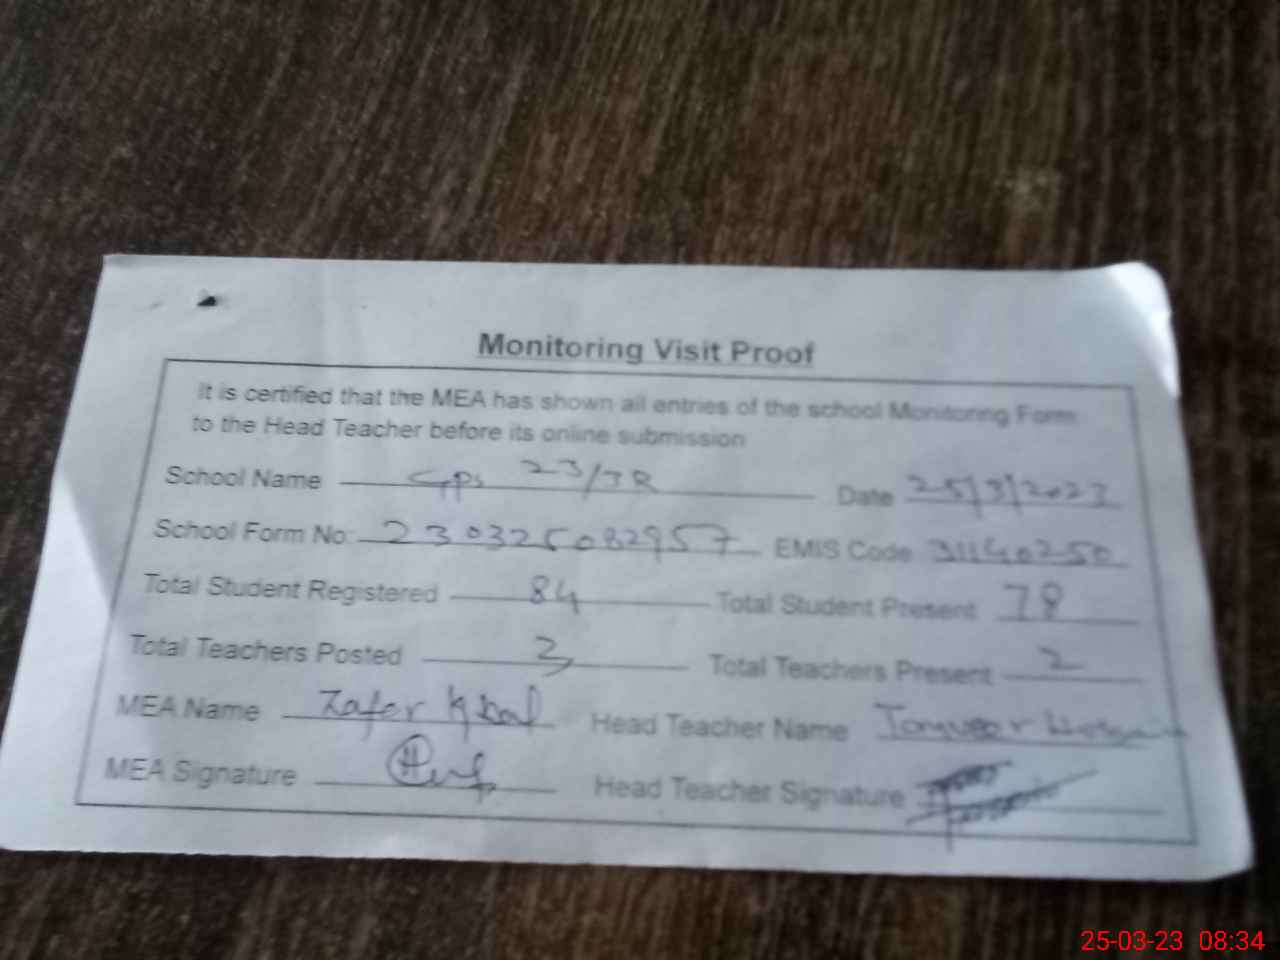 Monitoring Visit Proof
It is certified that the MEA has shown all entries of the school Monitoring Form
to the Head Teacher before its online submission
School Name GPS 23/3R Date 25/3/2023
School Form No: 230325082957 EMIS Code 31140250
Total Student Registered 84 Total Student Present 78
Total Teachers Posted 2 Total Teachers Present 2
MEA Name Zafar Iqbal Head Teacher Name Tanveer Hussain
MEA Signature Head Teacher Signature
25-03-23 08:34